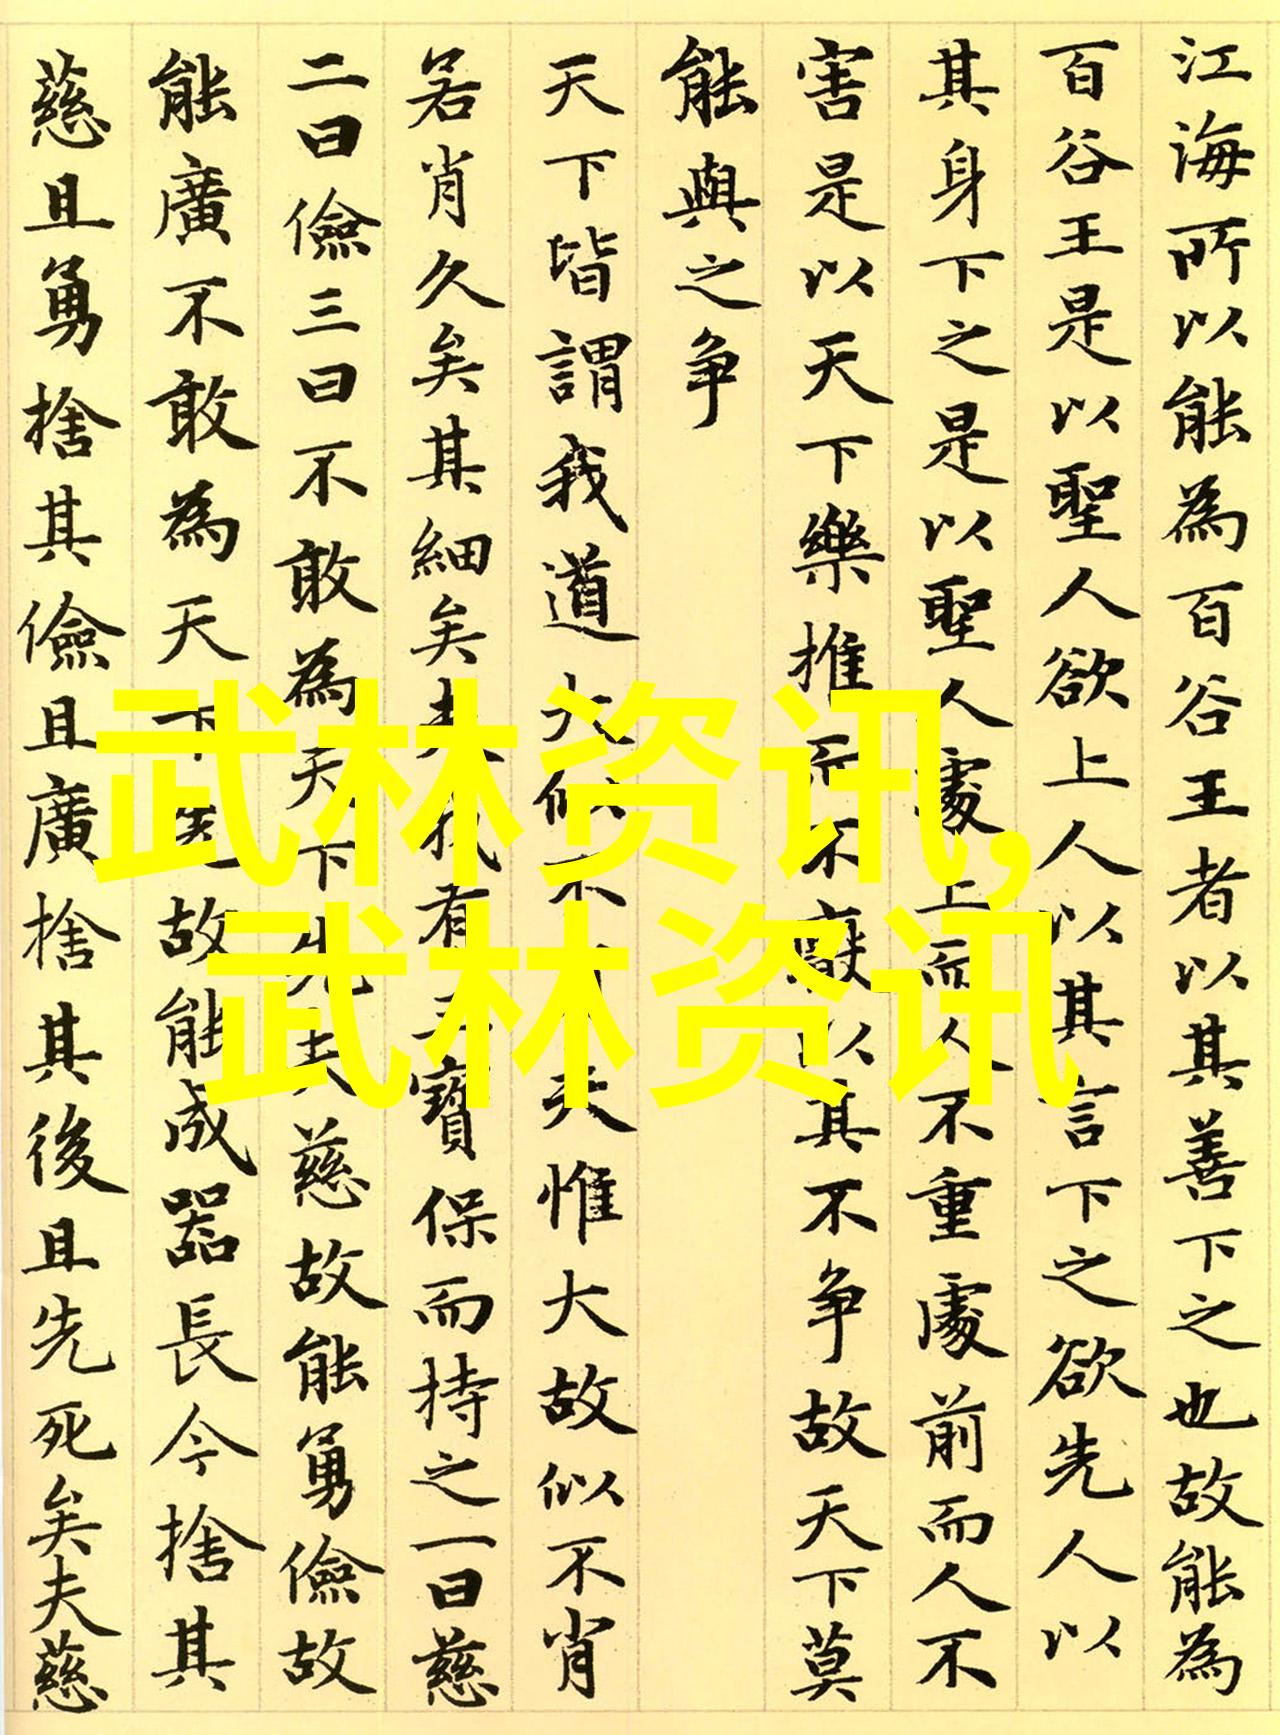 江海所以能為百谷王者以其善下之也故能為
百谷王是以聖人欲上人以其言下之欲先人以
其身下之是以聖人處上而人不重處前而人不
害是以天下樂推而不厭以其不争故天下莫
能與之争
天下皆謂我道大似不夫惟大故似不肖
若肖久矣其細矣夫我有三寶保而持之一曰慈
二曰儉三曰不敢為天下先夫慈故能勇儉故
能廣不敢為天下先故能成器長今捨其
慈且勇捨其儉且廣捨其後且先死矣夫慈
武林资讯,
武林资讯